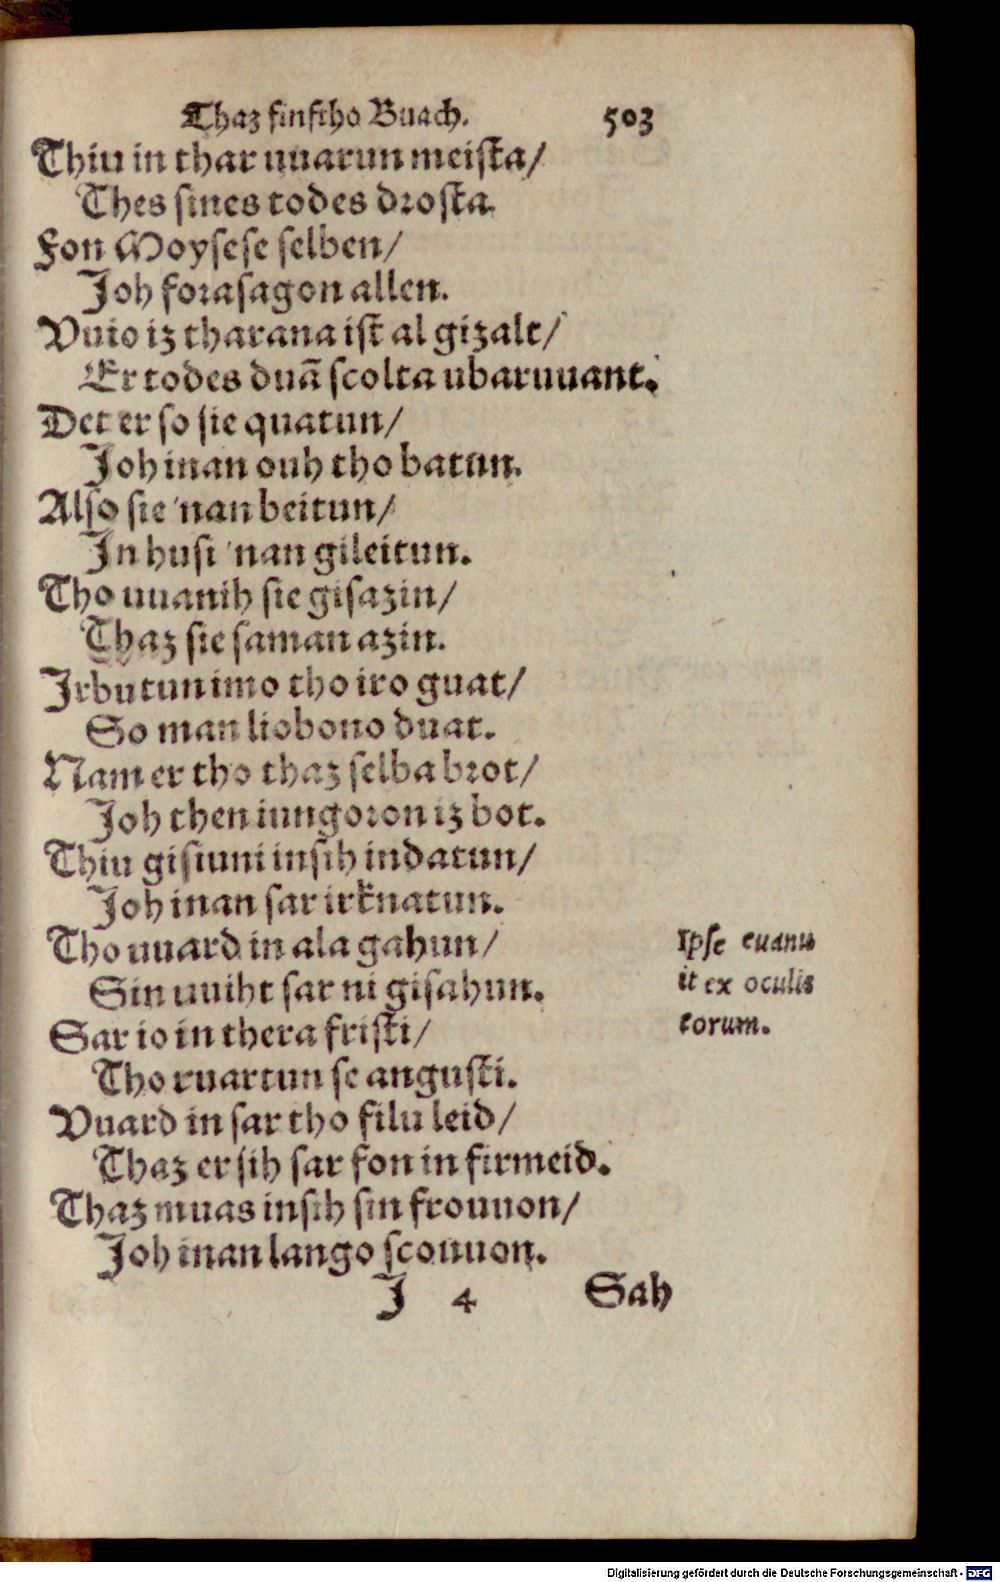 Thaz finftho Buach. 503
Thiu in thar uuarun meista/
Thes sines todes drosta.
Fon Moysese selben/
Joh forasagon allen.
Vuio iz tharana ist al gizalt/
Er todes duā scolta ubaruuant.
Det er so sie quatun/
Joh inan ouh tho batun.
Also sie 'nan beitun/
In husi 'nan gileitun.
Tho uuanih sie gisazin/
Thaz sie saman azin.
Irbutun imo tho iro guat/
So man liobono duat.
Nam er tho thaz selba brot/
Joh then iungoron iz bot.
Thiu gisiuni in sih indatun/
Joh inan sar irknatun.
Tho uuard in ala gahun/
Sin uuiht sar ni gisahun.
Ipse euanu
it ex oculis
eorum.
Sar io in thera fristi/
Tho ruartun se angusti.
Vuard in sar tho filu leid/
Thaz er sih sar fon in firmeid.
Thaz muas in sih sin frouuon/
Joh inan lango scouuon.
J 4 Sah
Digitalisierung gefördert durch die Deutsche Forschungsgemeinschaft - DFG